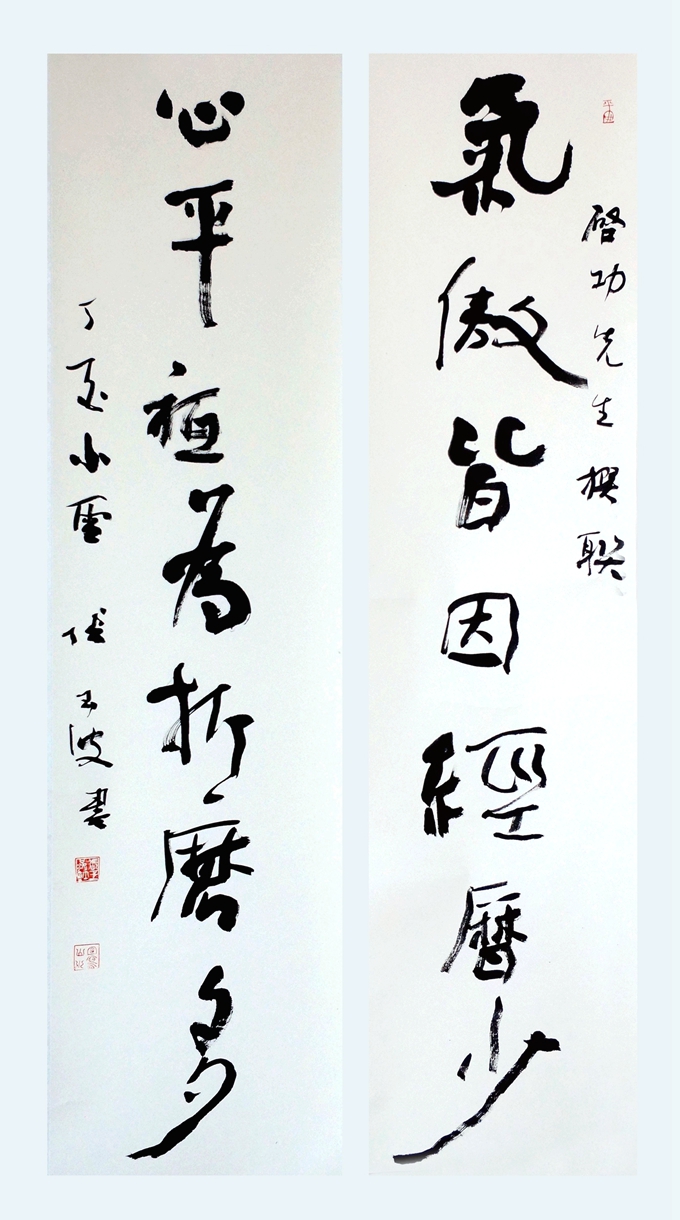 啓功先生撰聯
氣傲皆因經曆少
心平祗為折磨多
丁亥小雪 張玉波書